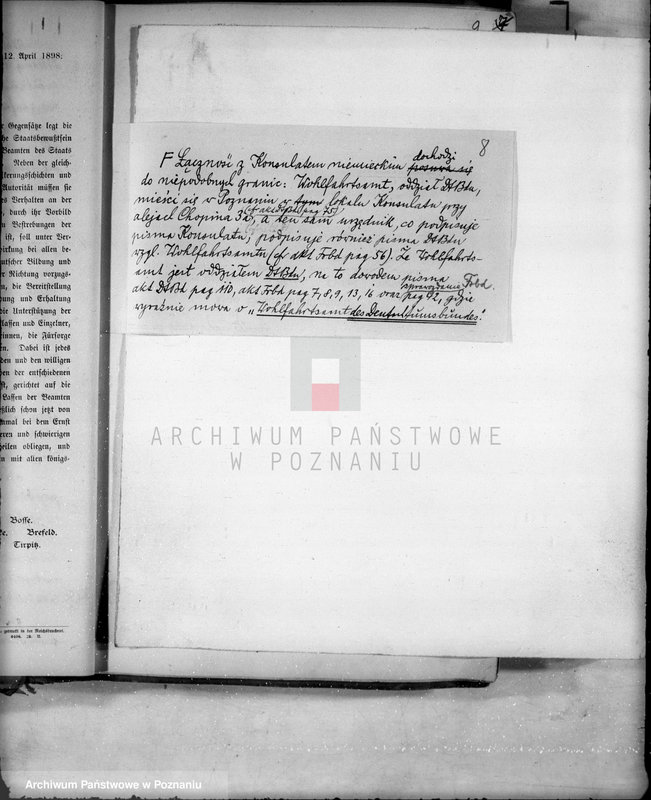 12. April 1898.
r Gegensätze legt die
he Staatsbewußtsein
Beamten des Staats
Neben der gleich-
lkerungsschichten und
Autorität müssen sie
es Verhalten an der
, durch ihr Vorbild
n Bestrebungen der
ist, soll unter Ver-
wirkung bei allen be-
utscher Bildung und
r Richtung vorzugs-
n, die Bereitstellung
ung und Erhaltung
die Unterstützung der
lassen und Einzelner,
rinnen, die Fürsorge
en. Dabei ist jedes
den und den willigen
en der entschiedenen
st, gerichtet auf die
Lassen der Beamten
eßlich schon jetzt von
nmal bei dem Ernst
eren und schwierigen
heilen obliegen, und
n mit allen königs-
Bosse.
ke. Brefeld.
Tirpitz.
gedruckt in der Reichsdruckerei.
9
8
F Łączność z Konsulatem niemieckim dochodzi
do niepodobnych granic: Wohlfahrtsamt, oddział DtBtu,
mieści się w Poznaniu w tym lokalu Konsulatu przy
alejach Chopina 3a, a ten sam urzędnik, co podpisuje
pisma Konsulatu, podpisuje również pisma DtBtu
wzgl. Wohlfahrtsamtu (cf akt Frbd pag 56). Że Wohlfahrts-
amt jest oddziałem DtBtu, na to dowodem pisma
akt DtBt pag 110, akt Frbd pag 7, 8, 9, 13, 16 oraz sprawozdanie Frbd.
pag 92, gdzie
wyraźnie mowa o „Wohlfahrtsamt des Deutschtumsbundes."
ARCHIWUM PAŃSTWOWE
W POZNANIU
Archiwum Państwowe w Poznaniu